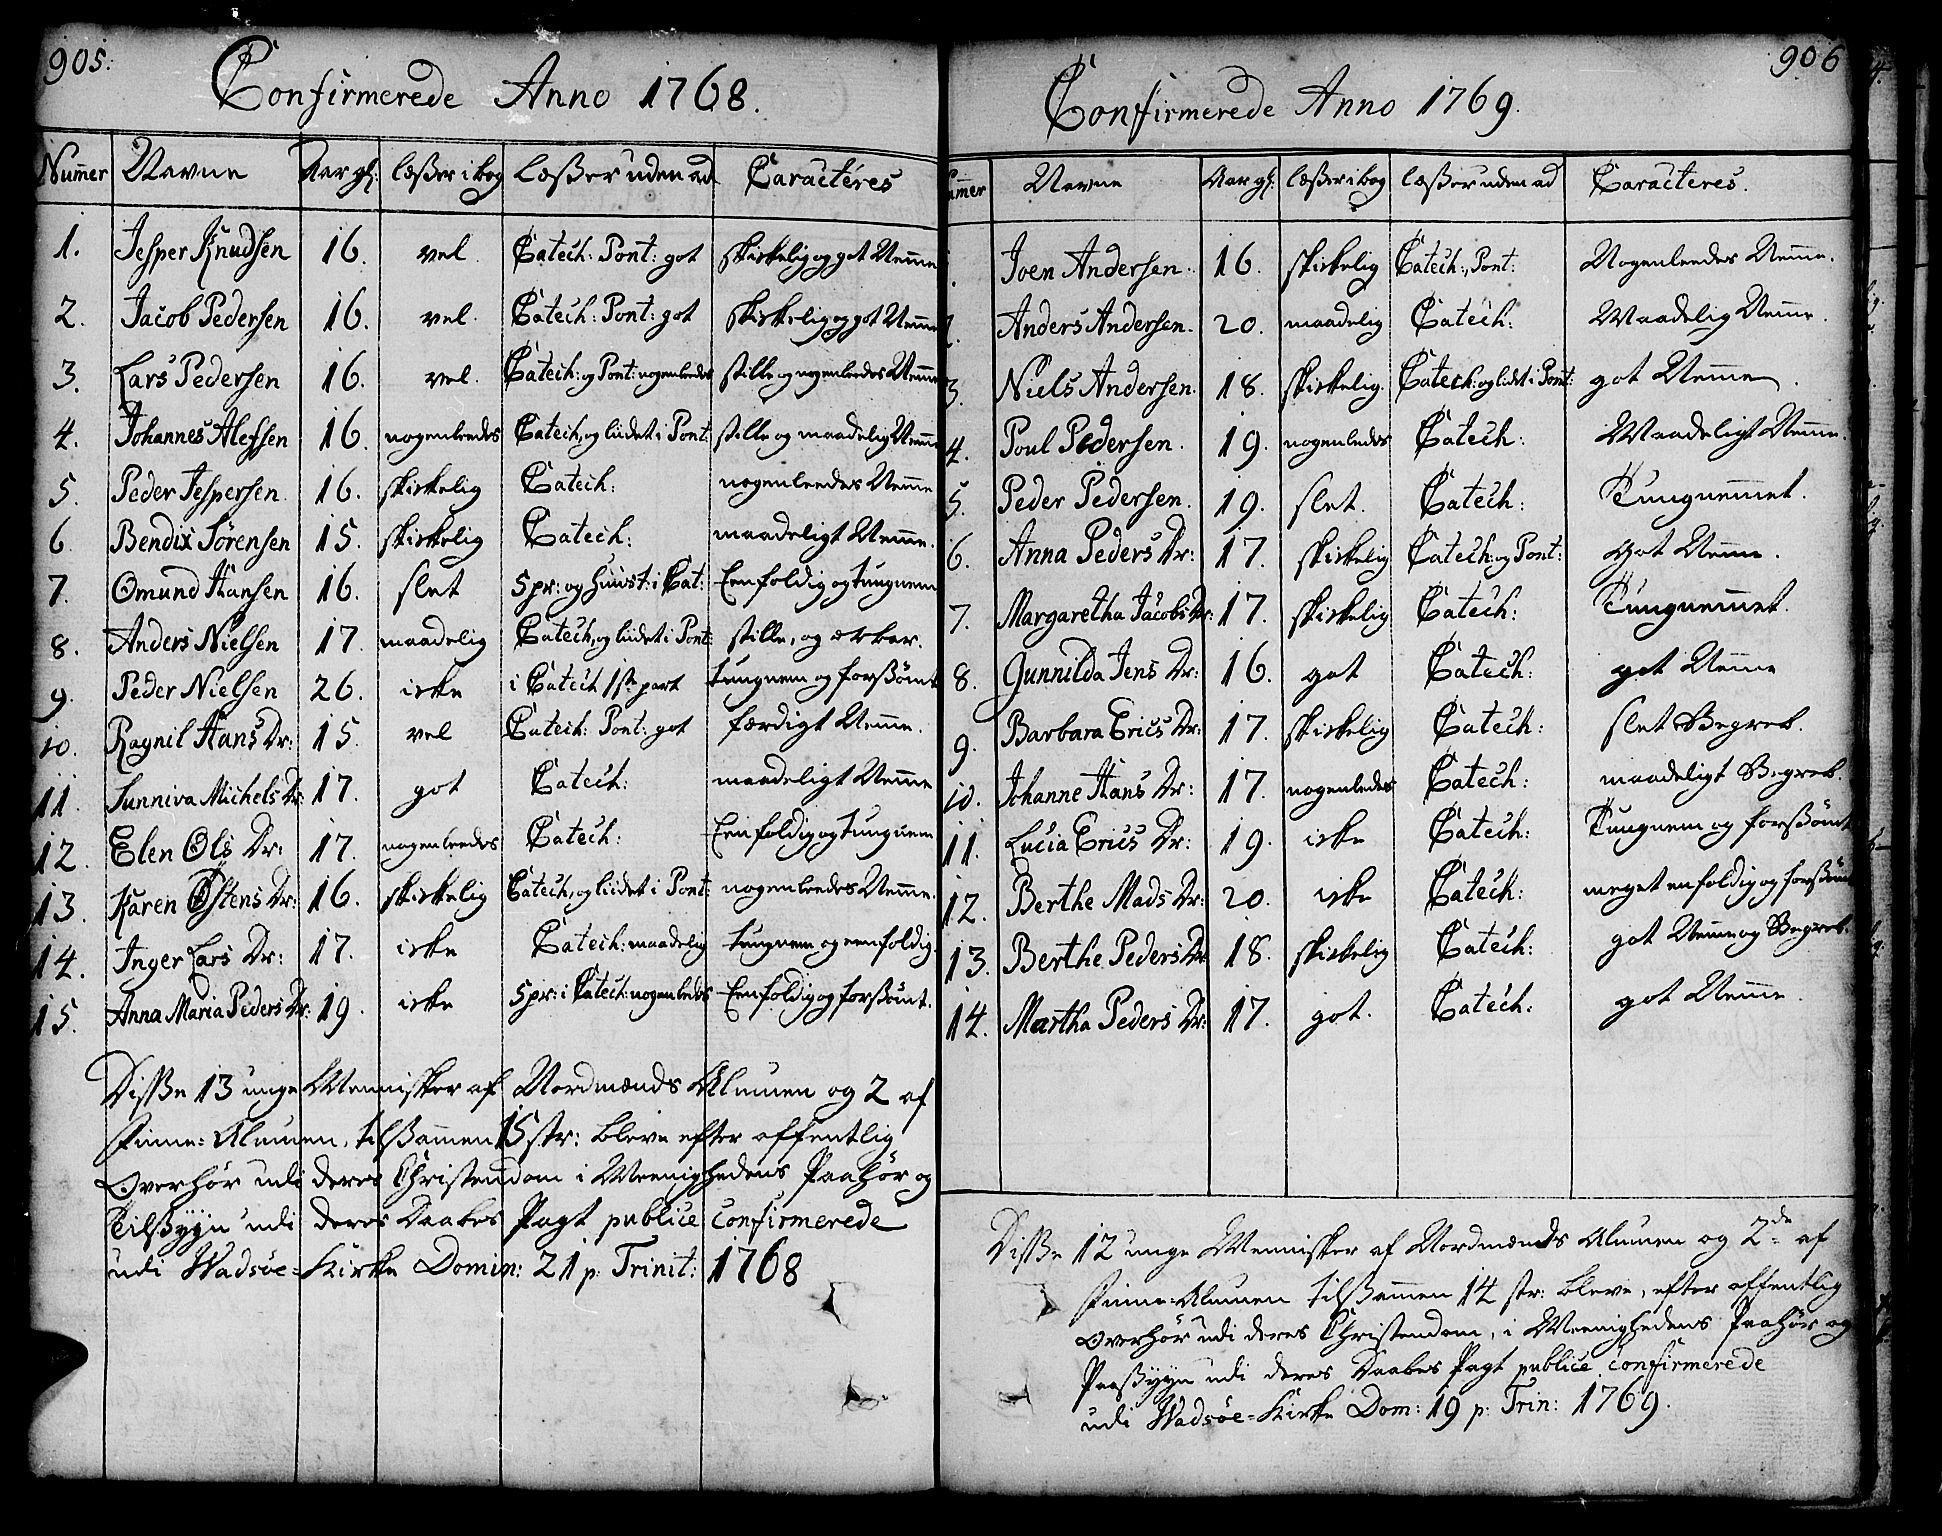 905.
Confirmerede Anno 1768.
Nummer Navne Aar gl: læßer i bog læßer uden ad Caractéres
1. Jesper Knudsen 16. vel. Catech: Pont: got skikkelig og got Nemme
2. Jacob Pedersen 16. vel. Catech: Pont: got skikkelig og got Nemme
3. Lars Pedersen 16. vel. Catech: og Pont: nogenleedes stille og nogenleedes Nemme
4. Johannes Alefsen 16. nogenleedes Catech, og liidet i Pont: stille og maadelig Nemme
5. Peder Jespersen 16. skikkelig Catech: nogenleedes Nemme
6. Bendix Sörensen 15. skikkelig Catech: maadeligt Nemme.
7. Omund Hansen 16. slet 5 pr: og huust: i Cat: Eenfoldig og tungnem
8. Anders Nielsen 17. maadelig Catech, og liidet i Pont: stille, og ærbar.
9. Peder Nielsen 26. icke i Catech 1ste part tungnem og forßömt
10. Ragnil Hans Dr: 15. vel Catech: Pont: got færdigt Nemme.
11. Sunniva Michels Dr: 17. got Catech: maadeligt Nemme
12. Elen Ols Dr: 17. nogenleedes Catech: Eenfoldig og tungnem
13. Karen Östens Dr: 16. skikkelig Catech, og liidet i Pont: nogenleedes Nemme.
14. Inger Lars Dr: 17. icke Catech: maadelig tungnem og eenfoldig.
15. Anna Maria Peders Dr: 19. icke 5 pr: i Catech: nogenledes Eenfoldig og forßömt.
Disße 13 unge Mennisker af Nordmænds Alumen og 2 af
Finne-Alumen, tilßammen 15 str: bleve efter offentlig
Overhör udi deres Christendom i Meenighedens Paahör og
Tilßyyn udi deres Daabes Pagt publicé confirmerede
udi Wadsöe-Kirke Domin: 21 p: Trinit: 1768
906
Confirmerede Anno 1769.
Nummer Navne Aar gl: læßer i bog læßer uden ad Caracteres.
Joen Andersen. 16. skikkelig Catech:, Pont: Nogenleedes Nemme.
2. Anders Andersen. 20. maadelig Catech: Maadelig Nemme.
3. Niels Andersen. 18. skikkelig. Catech: og lidet i Pont: got Nemme.
4. Poul Pedersen. 19. nogenledes Catech: Maadeligt Nemme.
5. Peder Pedersen. 19. slet. Catech: Tungnemmet.
6. Anna Peders Dr: 17. skikkelig Catech: og Pont: Got Nemme.
7. Margaretha Jacobs Dr: 17. skikkelig Catech: Tungnemmet.
8. Gunnilda Jens Dr: 16. got Catech: got Nemme
9. Barbara Erics Dr: 17. skikkelig Catech: slet Begreb.
10. Johanne Hans Dr: 17. nogenledes Catech: maadeligt Begreb.
11. Lucia Erics Dr: 19. icke Catech: Tungnem og forßömt
12. Berthe Mads Dr: 20. icke Catech: meget enfoldig og forßömt
13. Berthe Peders Dr 18. skikkelig Catech: got Nemme og Begreb.
14. Martha Peders Dr: 17. got. Catech: got Nemme.
Disße 12 unge Mennisker af Nordmænds Alumen og 2de af
Finne-Alumen tilßammen 14 str: bleve, efter offentlig
Overhör udi deres Christendom, i Meenighedens Paahör og
Paaßyyn udi deres Daabes Pagt publicé confirmerede
udi Wadsöe-Kirke Dom: 19 p: Trin: 1769.